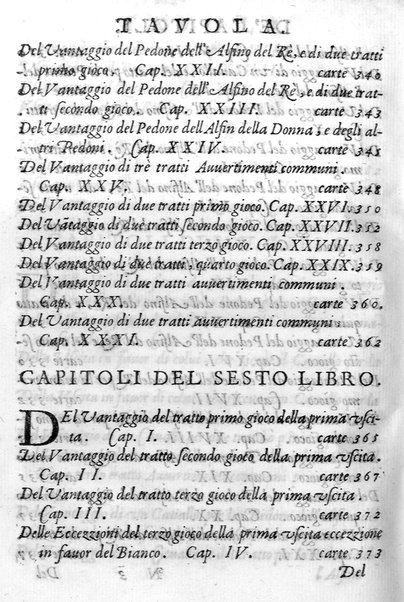 TAVOLA
Del Vantaggio del Pedone dell'Alfino del Rè, e di due tratti
primo gioco. Cap. XXII. carte 340
Del Vantaggio del Pedone dell'Alfino del Rè, e di due trat-
ti secõdo gioco. Cap. XXIII. carte 343
Del Vantaggio del Pedone dell'Alfin della Donna, e degli al-
tri Pedoni. Cap. XXIV. carte 345
Del Vantaggio di trè tratti Auuertimenti communi.
Cap. XXV. carte 348
Del Vantaggio di due tratti primo gioco. Cap. XXVI. 350
Del Vãtaggio di due tratti secõdo gioco. Cap. XXVII. 352
Del Vantaggio di due tratti terzo gioco. Cap. XXVIII. 358
Del Vantaggio di due tratti, quarto gioco. Cap. XXIX. 359
Del Vantaggio di due tratti auuertimenti communi.
Cap. XXX. carte 360.
Del Vantaggio di due tratti auuertimenti communi.
Cap. XXXI. carte 362
CAPITOLI DEL SESTO LIBRO.
DEl Vantaggio del tratto primo gioco della prima vsci-
ta. Cap. I. carte 365
Del Vantaggio del tratto secondo gioco della prima vscita.
Cap. II. carte 367
Del Vantaggio del tratto terzo gioco della prima vscita.
Cap. III. carte 372
Delle Eccezzioni del terzo gioco della prima vscita eccezzione
in fauor del Bianco. Cap. IV. carte 373
Del